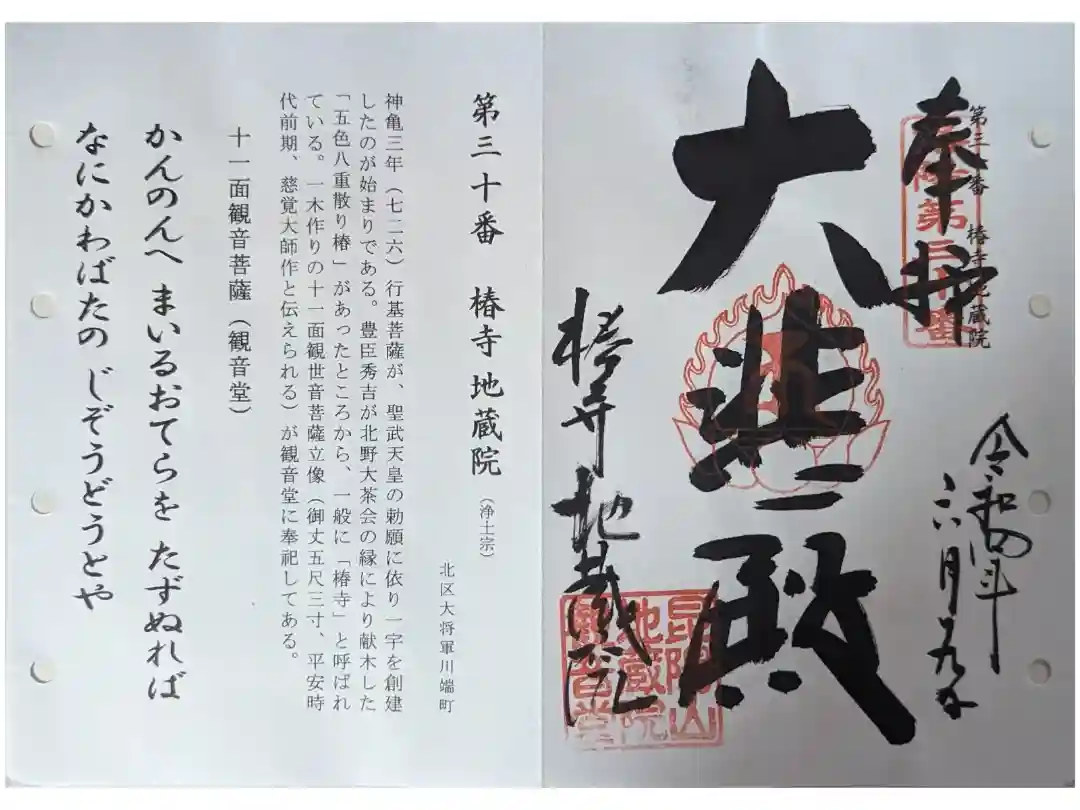 第三十番 椿寺地蔵院
奉拝
洛陽第三十番
令和四年
六月
大悲殿
椿寺地蔵院
昆陽山
地蔵院
観音堂
第三十番 椿寺地蔵院(浄土宗)
北区大将軍川端町
神亀三年(七二六)行基菩薩が、聖武天皇の勅願に依り一宇を創建
したのが始まりである。豊臣秀吉が北野大茶会の縁により献木した
「五色八重散り椿」があったところから、一般に「椿寺」と呼ばれ
ている。一木作りの十一面観世音菩薩立像(御丈五尺三寸、平安時
代前期、慈覚大師作と伝えられる)が観音堂に奉祀してある。
十一面観音菩薩(観音堂)
かんのんへ まいるおてらを たずぬれば
なにかわばたの じぞうどうとや